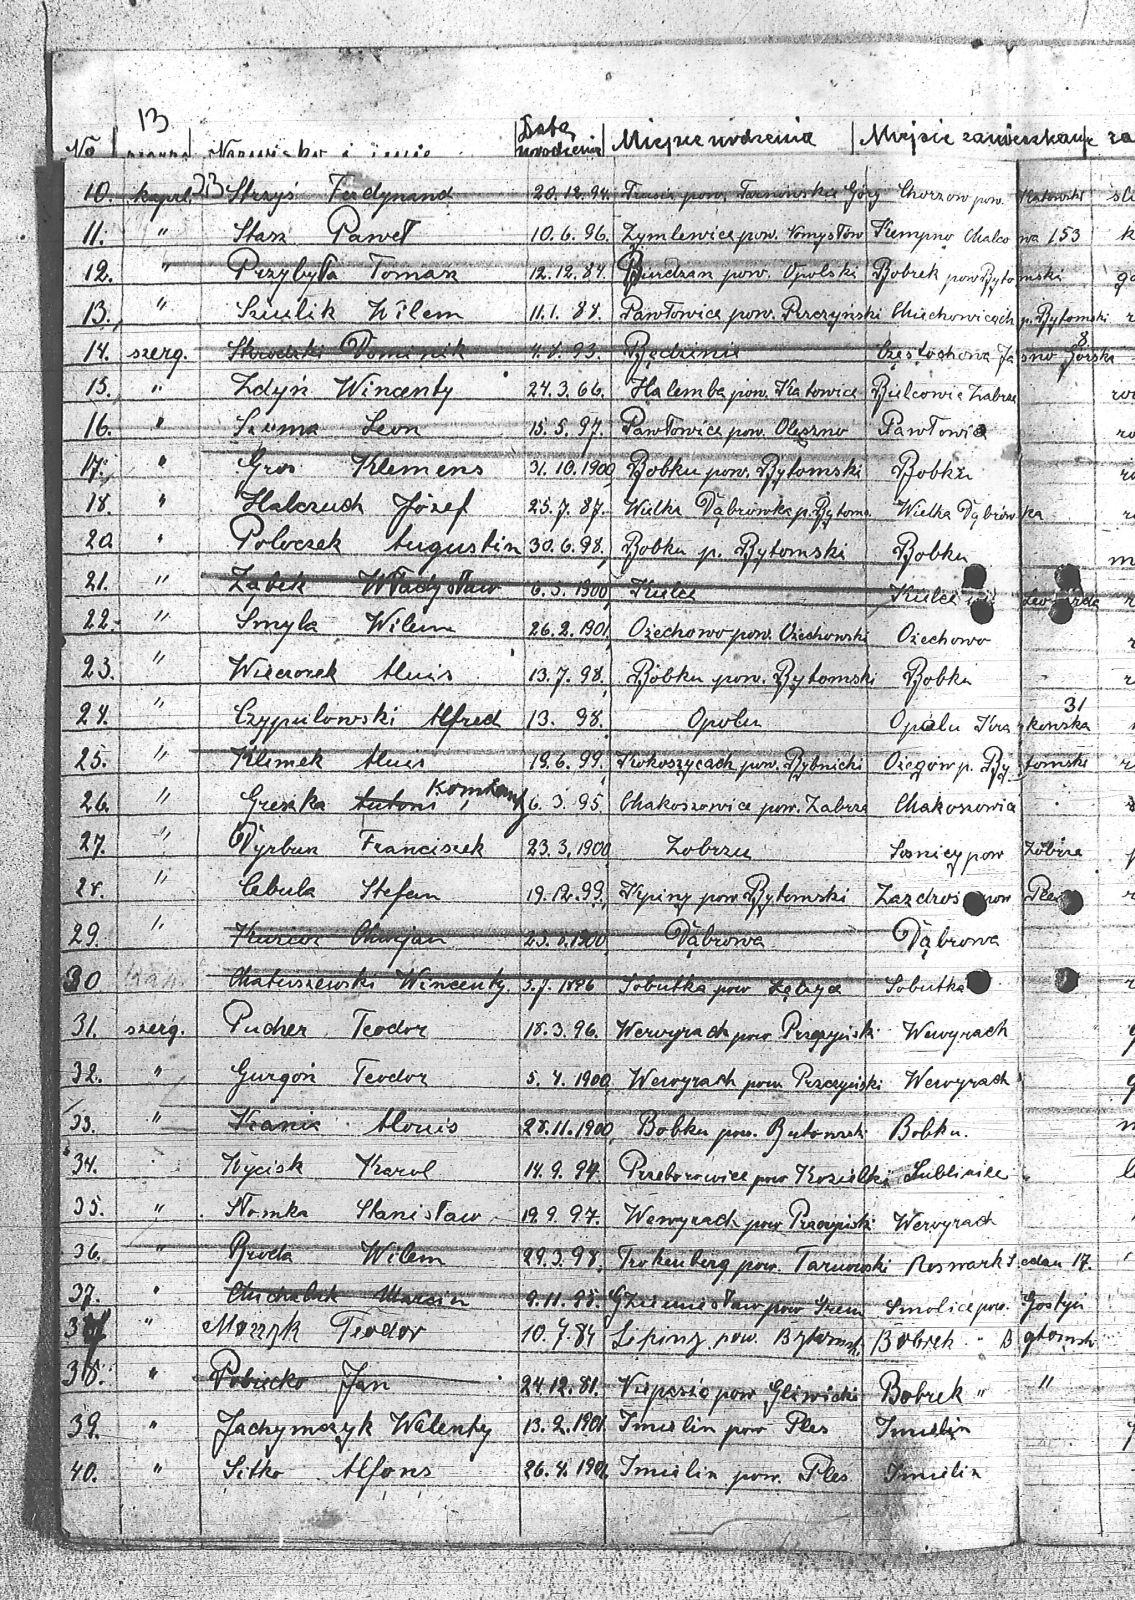 13
No Nazwisko i imię Data urodzenia Miejsce urodzenia Miejsce zamieszkania za
10. kapr. 23 Strzyś Ferdynand 20.12.94. pow. Tarnowskie Góry Chorzow pow. Katowski
11. " Stasz Paweł 10.6.96. Zymlewice pow. Nomysłow Kempno Malcowa 153
12. " Przybyła Tomasz 12.12.87. pow. Opolski Bobrek pow Bytomski
13. " Szulik Wilem 11.1.88. Pawłowice pow. Pszczyński Miechowicach p. Bytomski
14. szerg. Słowodzki Dominik 4.8.93. Będzinie Częstochowa Jasno Górska 8
15. " Zdyń Wincenty 24.3.66. Halemba pow. Katowice Bielcowie Zabrze
16. " Szuma Leon 15.5.97. Pawłowice pow. Oleszno Pawłowice
17. " Gros Klemens 31.10.1900 Bobku pow. Bytomski Bobku
18. " Halczuch Józef 25.7.87. Wielka Dąbrówka p. Bytom. Wielka Dąbrówka
20 " Poloczek Augustin 30.6.98. Bobku p. Bytomski Bobku
21. " Ząbek Władysław 6.5.1900 Kielce Kielce
22. " Smyla Wilem 26.2.1901 Ożechowo pow. Ożechowski Ożechowo
23. " Wieczorek Aluis 13.7.98. Bobku pow. Bytomski Bobku
24. " Czypulowski Alfred 13. 98. Opolu Opolu Krakowska 31
25. " Klimek Aluis 19.6.99. Kokoszycach pow. Rybnicki Ożegow p. Bytomski
26. " Greszka Antoni Konstanty 6.3.95. Makoszowice pow. Zabrze Makoszowice
27. " Dyrbun Franciszek 23.3.1900 Zobrzu Sosnicy pow Zobrze
28. " Cebula Stefan 19.12.99. Lipiny pow Bytomski Zazdros pow Ples
29. " Maryan 25.8.1900 Dąbrowa Dąbrowa
30 kap. Matuszewski Wincenty. 5.7.1896 Sobutka pow Łęczyce Sobutka
31. szerg. Pucher Teodor 18.3.96. Werwyrach pow Pszczyński Werwyrach
32. " Gurgoń Teodor 5.4.1900 Werwyrach pow. Pszczyński Werwyrach
33. " Kania Alouis 28.11.1900 Bobku pow. Bytomski Bobku.
34. Wycisk Karol 14.9.94. Przeborowice pow Kozielski Lubliniec
35. " Słomka Stanisław 19.9.97. Werwyrach pow Pszczyński Werwyrach
36. " Broda Wilem 29.3.98. Trokenberg pow. Tarnowski Rosmark Sedan 17.
37. " Michalak Marcin 9.11.95. pow Srem Smolice pow. Gostyń
37 " Mozzyk Teodor 10.7.84 Lipiny pow. Bytomsk. Bobrek " Bytomsk
38. " Pobiecko Jan 24.12.81. pow Gliwicki Bobrek " "
39. " Jachymczyk Walenty 13.2.1901. Imielin pow Ples Imielin
40. " Sitko Alfons 26.4.1901. Imielin pow. Ples Imielin